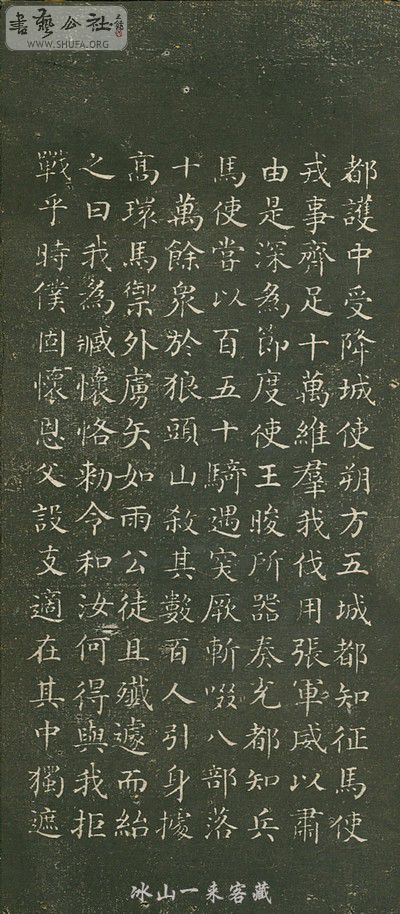 書藝公社
WWW.SHUFA.ORG
都護中受降城使朔方五城都知征馬使
戎事齊足十萬維羣我伐用張軍威以肅
由是深為節度使王晙所器奏充都知兵
馬使嘗以百五十騎遇突厥斬啜八部落
十萬餘衆於狼頭山殺其數百人引身據
高環馬禦外虜矢如雨公徒且殲遽而紿
之曰我為臧懷恪勑令和汝何得與我拒
戰乎時僕固懷恩父設支適在其中獨遮
冰山一来客藏